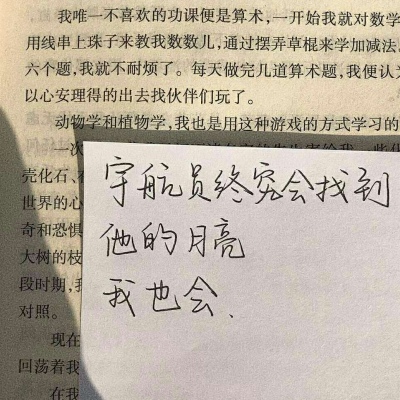 我唯一不喜欢的功课便是算术，一开始我就对数学
用线串上珠子来教我数数儿，通过摆弄草棍来学加减法，
六个题，我就不耐烦了。每天做完几道算术题，我便认为
以心安理得的出去找伙伴们玩了。
动物学和植物学，我也是用这种游戏的方式学习的
一次
壳化石、
世界的心
奇和恐惧
大树的枝
段时期，我
对照。
现在
回荡着我
在我
宇航员终究会找到
他的月亮
我也会.